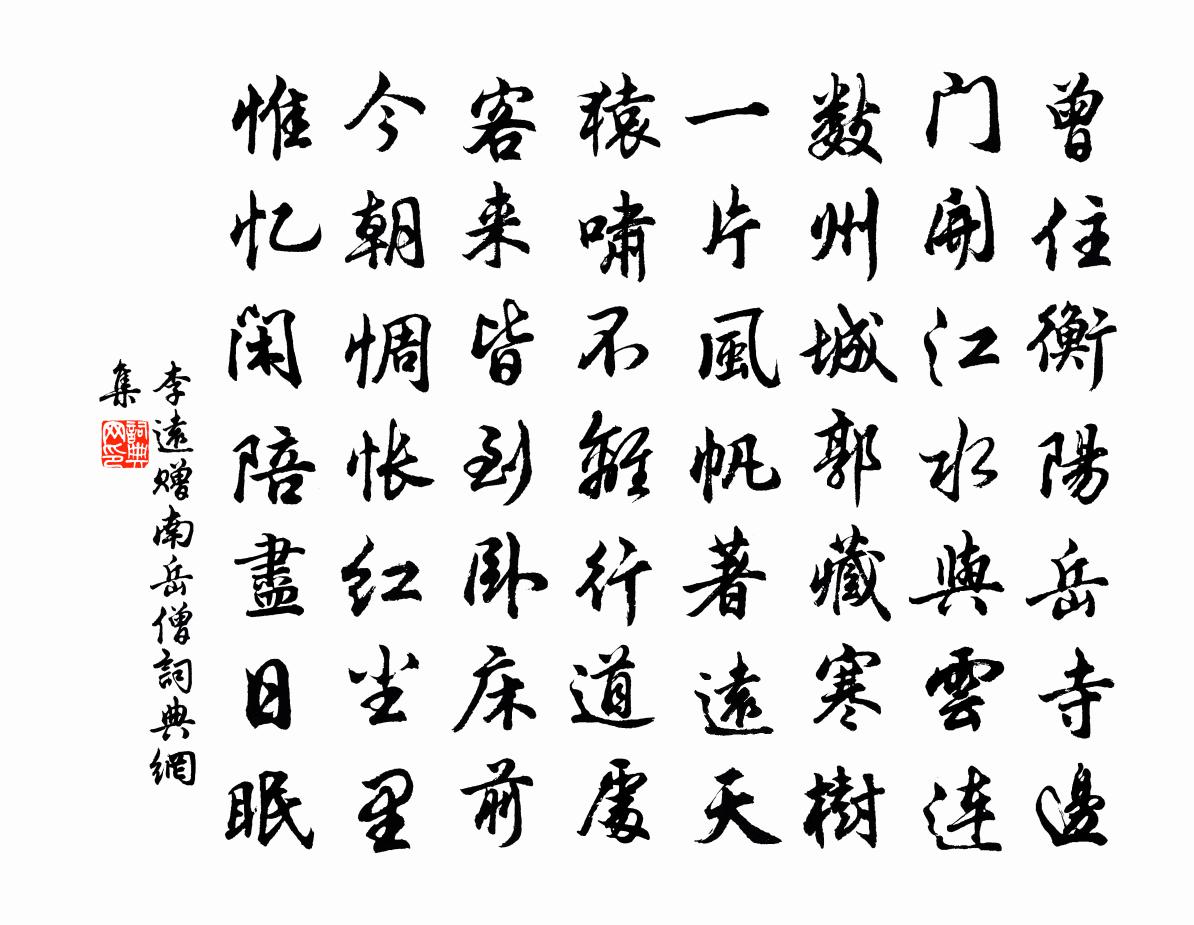 曾住衡陽岳寺邊
门開江水與雲连
數州城郭藏寒樹
一片風帆著遠天
猿嘯不離行道處
客来皆到卧床前
今朝惆怅红尘里
惟忆闲陪盡日眠
李遠赠南岳僧詞典網
集
詞典网印